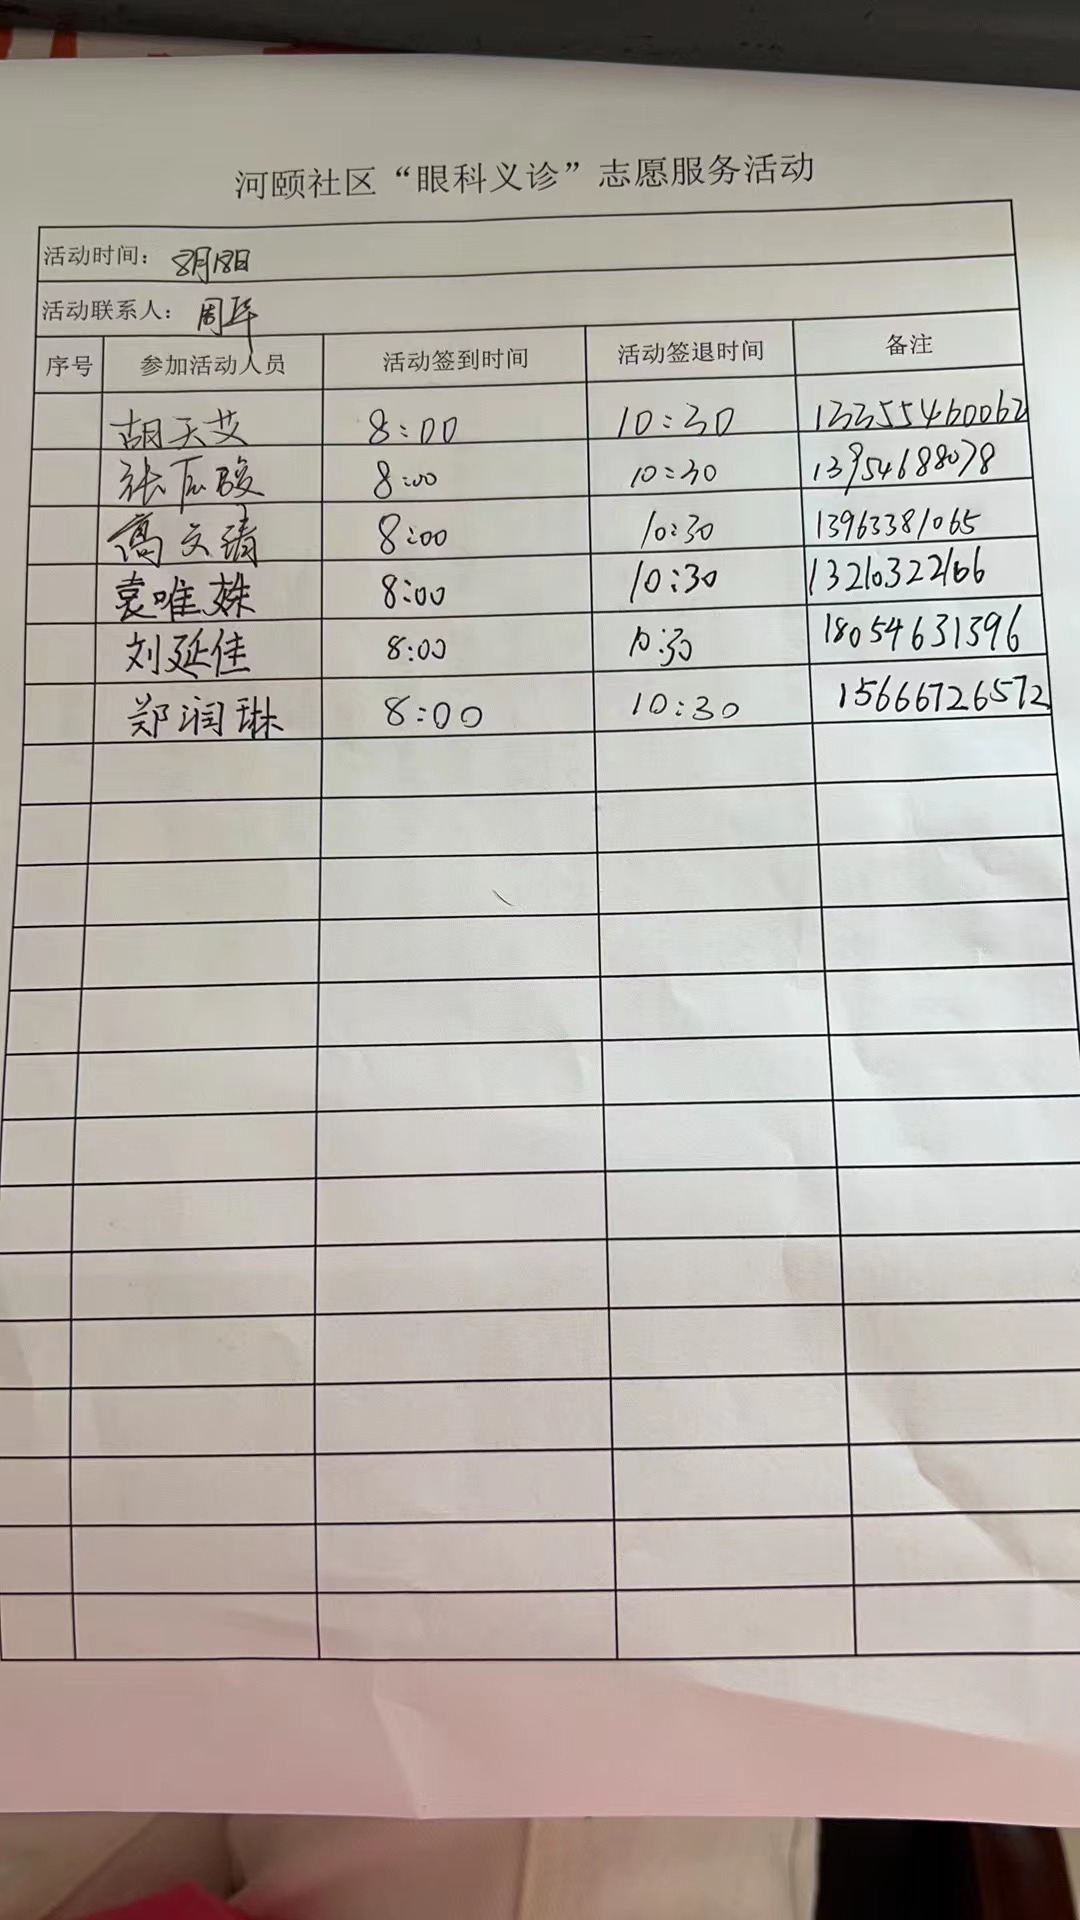 河颐社区“眼科义诊”志愿服务活动
活动时间：8月18日
活动联系人：周华
序号 参加活动人员 活动签到时间 活动签退时间 备注
胡天艾 8:00 10:30 13355460062
张辰骏 8:00 10:30 13954688078
高文靖 8:00 10:30 13963381065
袁唯姝 8:00 10:30 13210322166
刘延佳 8:00 10:30 18054631396
郑润琳 8:00 10:30 15666726572